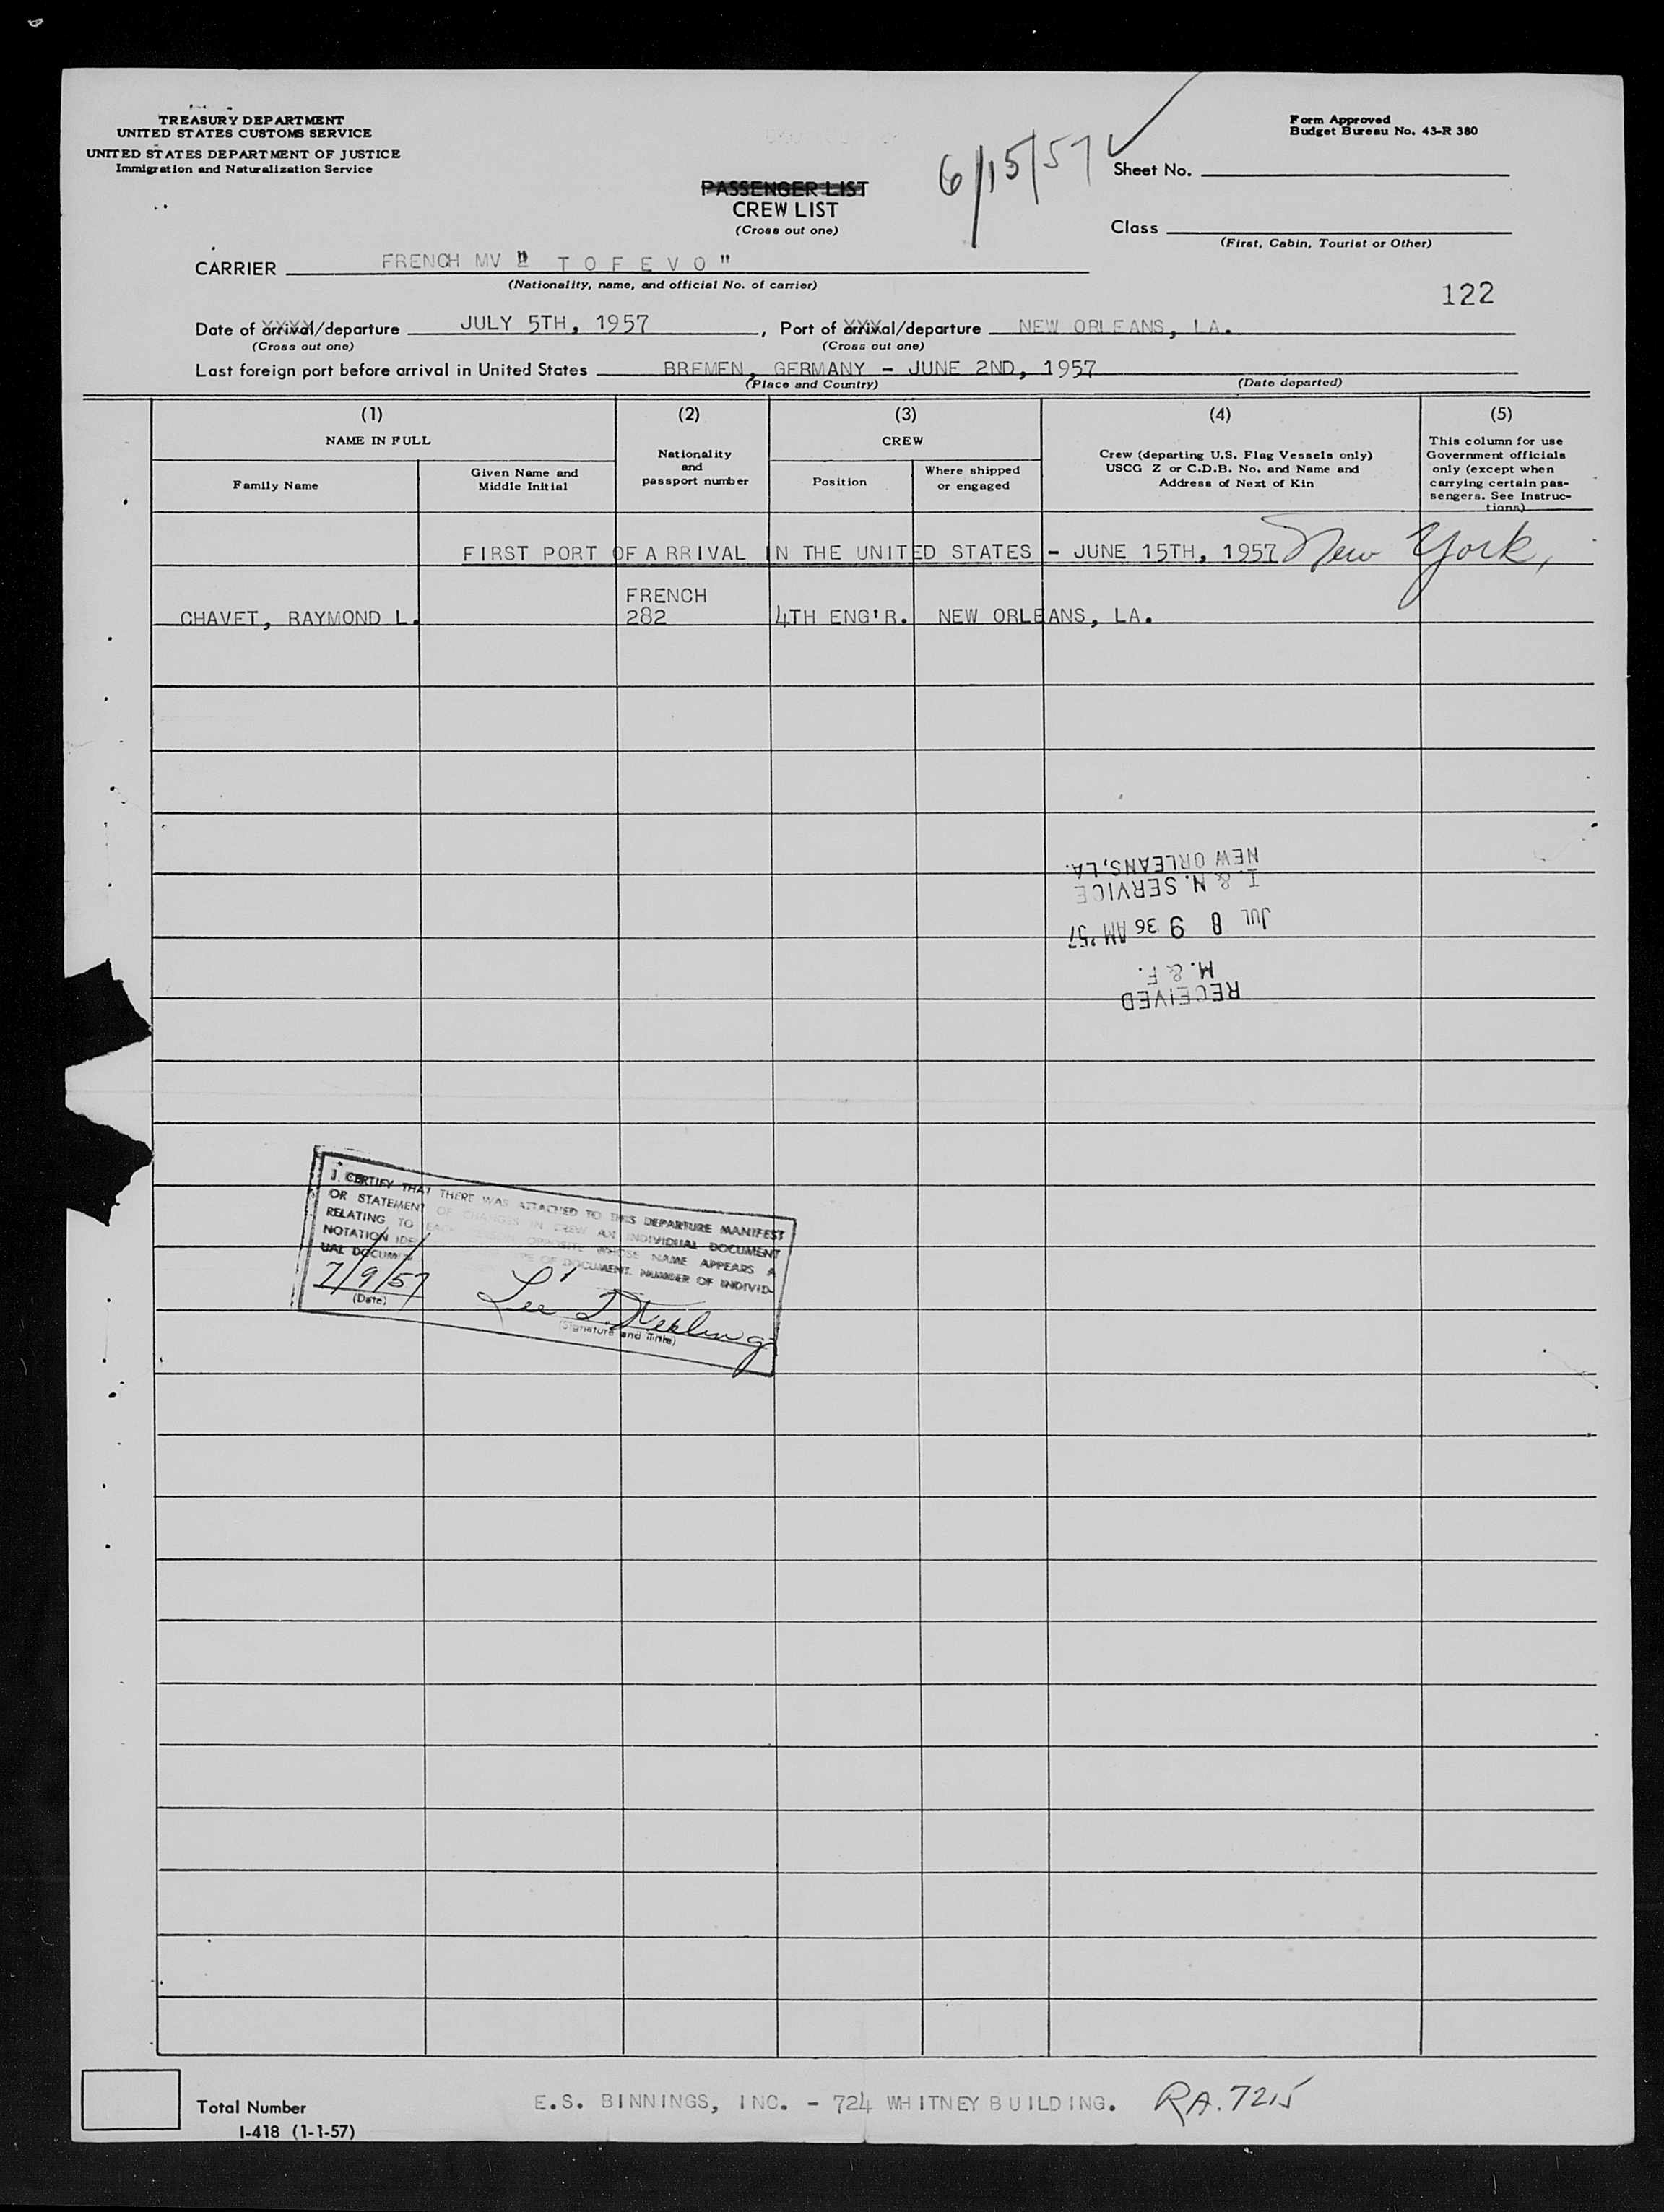 TREASURY DEPARTMENT
UNITED STATES CUSTOMS SERVICE
UNITED STATES DEPARTMENT OF JUSTICE
Immigration and Naturalization Service
Form Approved
Budget Bureau No. 43-R 380
6/15/57
Sheet No.
PASSENGER LIST
CREW LIST
(Cross out one)
Class
(First, Cabin, Tourist or Other)
CARRIER FRENCH MV " T O F E V O "
(Nationality, name, and official No. of carrier)
122
Date of arrival/departure JULY 5TH, 1957, Port of arrival/departure NEW ORLEANS, LA.
(Cross out one) (Cross out one)
Last foreign port before arrival in United States BREMEN, GERMANY - JUNE 2ND, 1957
(Place and Country) (Date departed)
(1) (2) (3) (4) (5)
NAME IN FULL
Family Name
Given Name and
Middle Initial
Nationality
and
passport number
CREW
Position
Where shipped
or engaged
Crew (departing U.S. Flag Vessels only)
USCG Z or C.D.B. No. and Name and
Address of Next of Kin
This column for use
Government officials
only (except when
carrying certain pas-
sengers. See Instruc-
tions)
FIRST PORT OF ARRIVAL IN THE UNITED STATES - JUNE 15TH, 1957 New York,
FRENCH
CHAVET, RAYMOND L. 282 4TH ENG'R. NEW ORLEANS, LA.
RECEIVED
M. & F.
JUL 8 9 36 AM '57
I. & N. SERVICE
NEW ORLEANS, LA.
I CERTIFY THAT THERE WAS ATTACHED TO THIS DEPARTURE MANIFEST
OR STATEMENT OF CHANGES IN CREW AN INDIVIDUAL DOCUMENT
RELATING TO OPPOSITE WHOSE NAME APPEARS A
NOTATION OF DOCUMENT. NUMBER OF INDIVID-
UAL
7/9/57
(Date)
Lee
(Signature and Title)
Total Number
E.S. BINNINGS, INC. - 724 WHITNEY BUILDING. RA. 7215
I-418 (1-1-57)